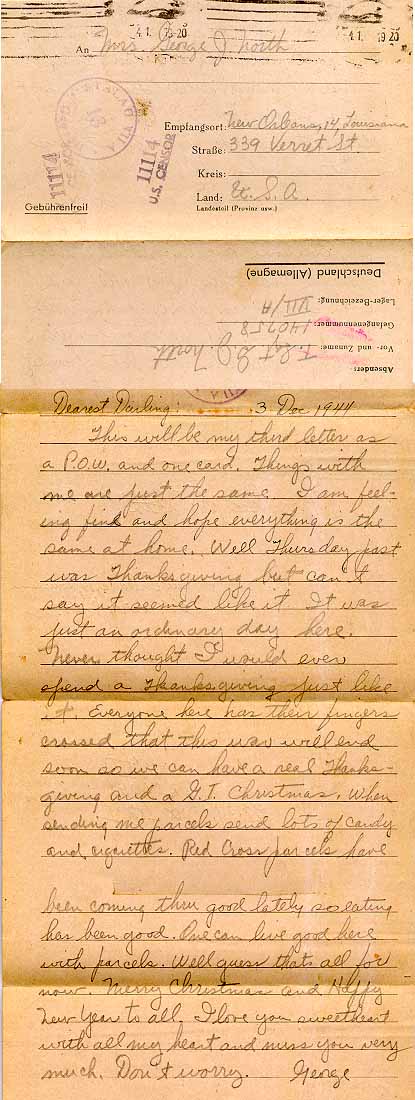 41. 18-20
41 19 20
An Mrs. George J North
11114
U.S. CENSOR
11114
Empfangsort: New Orleans, 14, Louisiana
Straße: 339 Verret St.
Kreis:
Land: U.S.A.
Landesteil (Provinz usw.)
Gebührenfrei!
Deutschland (Allemagne)
Lager-Bezeichnung: VII/A
Gefangenennummer: 140258
Vor- und Zuname: T.Sgt G.J. North
Absender:
Dearest Darling: 3 Dec 1944
This will be my third letter as
a P.O.W. and one card. Things with
me are just the same. I am feel-
ing fine and hope everything is the
same at home. Well Thursday past
was Thanksgiving but can't
say it seemed like it. It was
just an ordinary day here.
Never thought I would ever
spend a Thanksgiving just like
it. Everyone here has their fingers
crossed that this war will end
soon so we can have a real Thanks-
giving and a G.I. Christmas. When
sending me parcels send lots of candy
and cigarettes. Red Cross parcels have
been coming thru good lately so eating
has been good. One can live good here
with parcels. Well guess thats all for
now. Merry Christmas and Happy
New Year to all. I love you sweetheart
with all my heart and miss you very
much. Don't worry. George